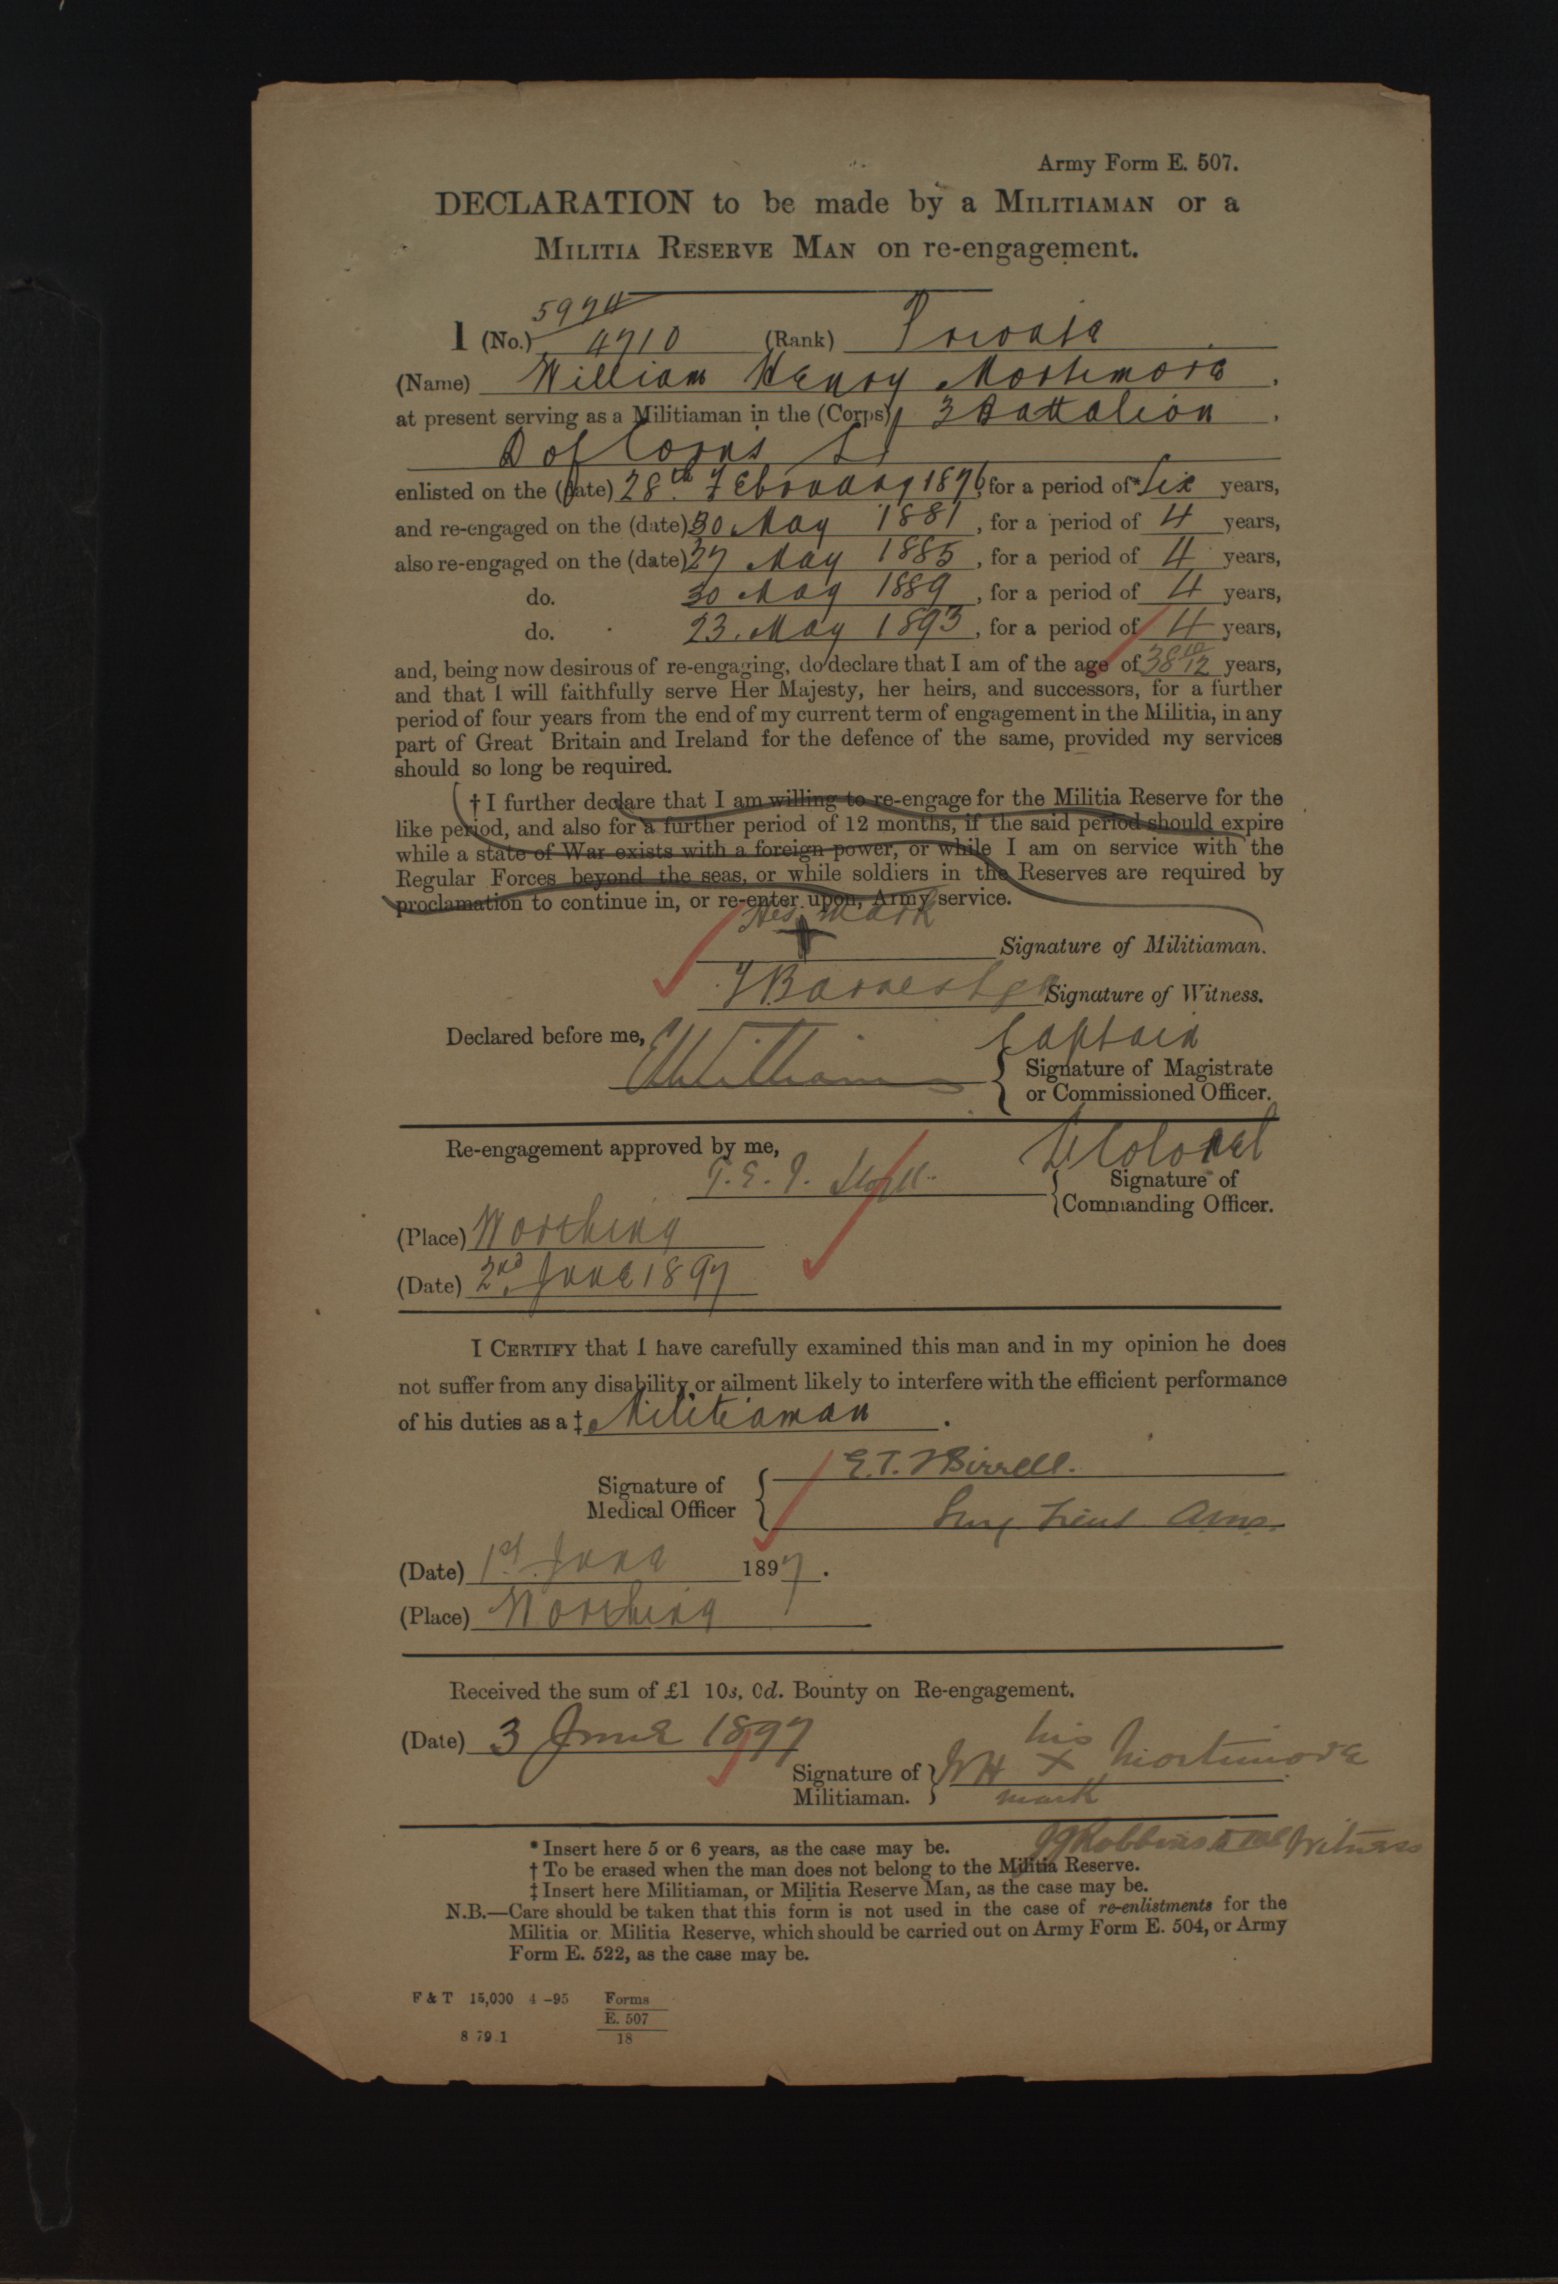 Army Form E. 507.
DECLARATION to be made by a MILITIAMAN or a
MILITIA RESERVE MAN on re-engagement.
I (No.) 4710 (Rank) Private
(Name) William Henry Mortimore.
at present serving as a Militiaman in the (Corps) 3 Battalion.
D of Corns LI
enlisted on the (date) 28th February 1876, for a period of* Six years,
and re-engaged on the (date) 30 May 1881, for a period of 4 years,
also re-engaged on the (date) 27 May 1885, for a period of 4 years,
do. 30 May 1889, for a period of 4 years,
do. 23. May 1893, for a period of 4 years,
and, being now desirous of re-engaging, do declare that I am of the age of 38 years,
and that I will faithfully serve Her Majesty, her heirs, and successors, for a further
period of four years from the end of my current term of engagement in the Militia, in any
part of Great Britain and Ireland for the defence of the same, provided my services
should so long be required.
† I further declare that I am willing to re-engage for the Militia Reserve for the
like period, and also for a further period of 12 months, if the said period should expire
while a state of War exists with a foreign power, or while I am on service with the
Regular Forces beyond the seas, or while soldiers in the Reserves are required by
proclamation to continue in, or re-enter upon, Army service.
His mark
+
Signature of Militiaman.
Signature of Witness.
Declared before me, Captain
Signature of Magistrate
or Commissioned Officer.
Re-engagement approved by me, Lt Colonel
Signature of
Commanding Officer.
(Place) Worthing
(Date) 2nd. June 1897
I CERTIFY that I have carefully examined this man and in my opinion he does
not suffer from any disability or ailment likely to interfere with the efficient performance
of his duties as a ‡ Militiaman.
E.T. Birrell.
Signature of
Medical Officer
Surg Lieut AMS.
(Date) 1st. June 1897.
(Place) Worthing
Received the sum of £1 10s. 0d. Bounty on Re-engagement.
(Date) 3 June 1897
his
Signature of Militiaman. WH X Mortimore
mark
Witness
* Insert here 5 or 6 years, as the case may be.
† To be erased when the man does not belong to the Militia Reserve.
‡ Insert here Militiaman, or Militia Reserve Man, as the case may be.
N.B.—Care should be taken that this form is not used in the case of re-enlistments for the
Militia or Militia Reserve, which should be carried out on Army Form E. 504, or Army
Form E. 522, as the case may be.
F & T 15,000 4-95 Forms
E. 507
8 79 1 18